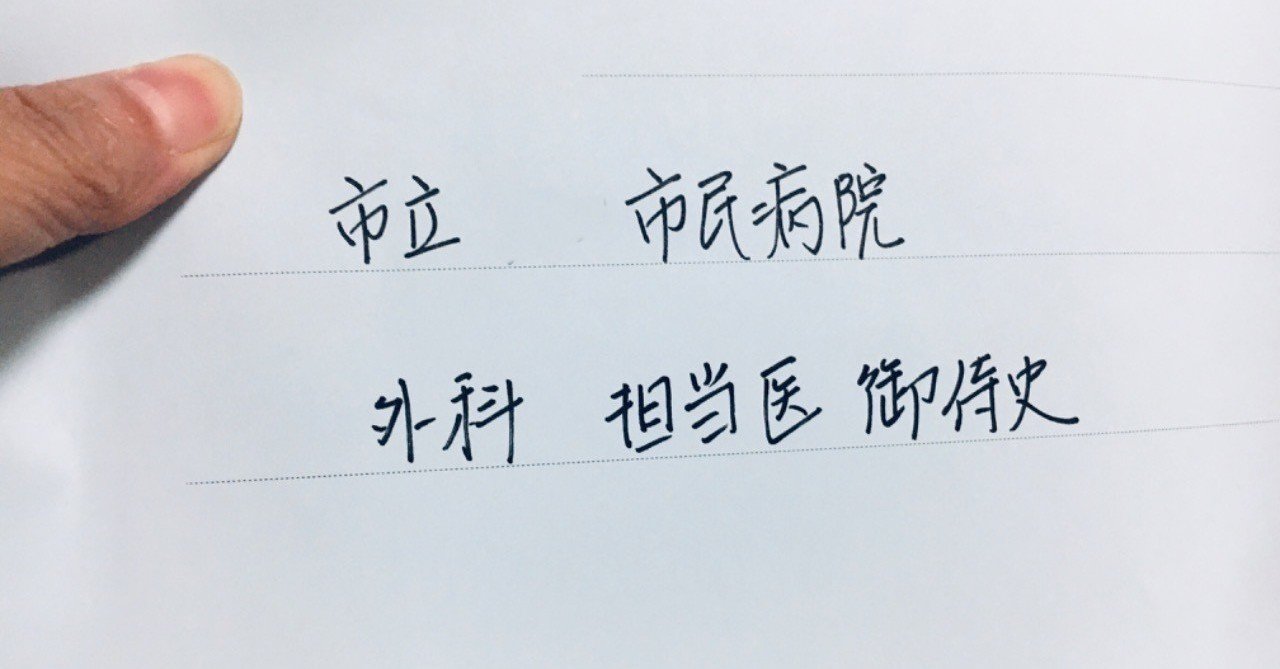 市立 市民病院
外科 担当医 御侍史